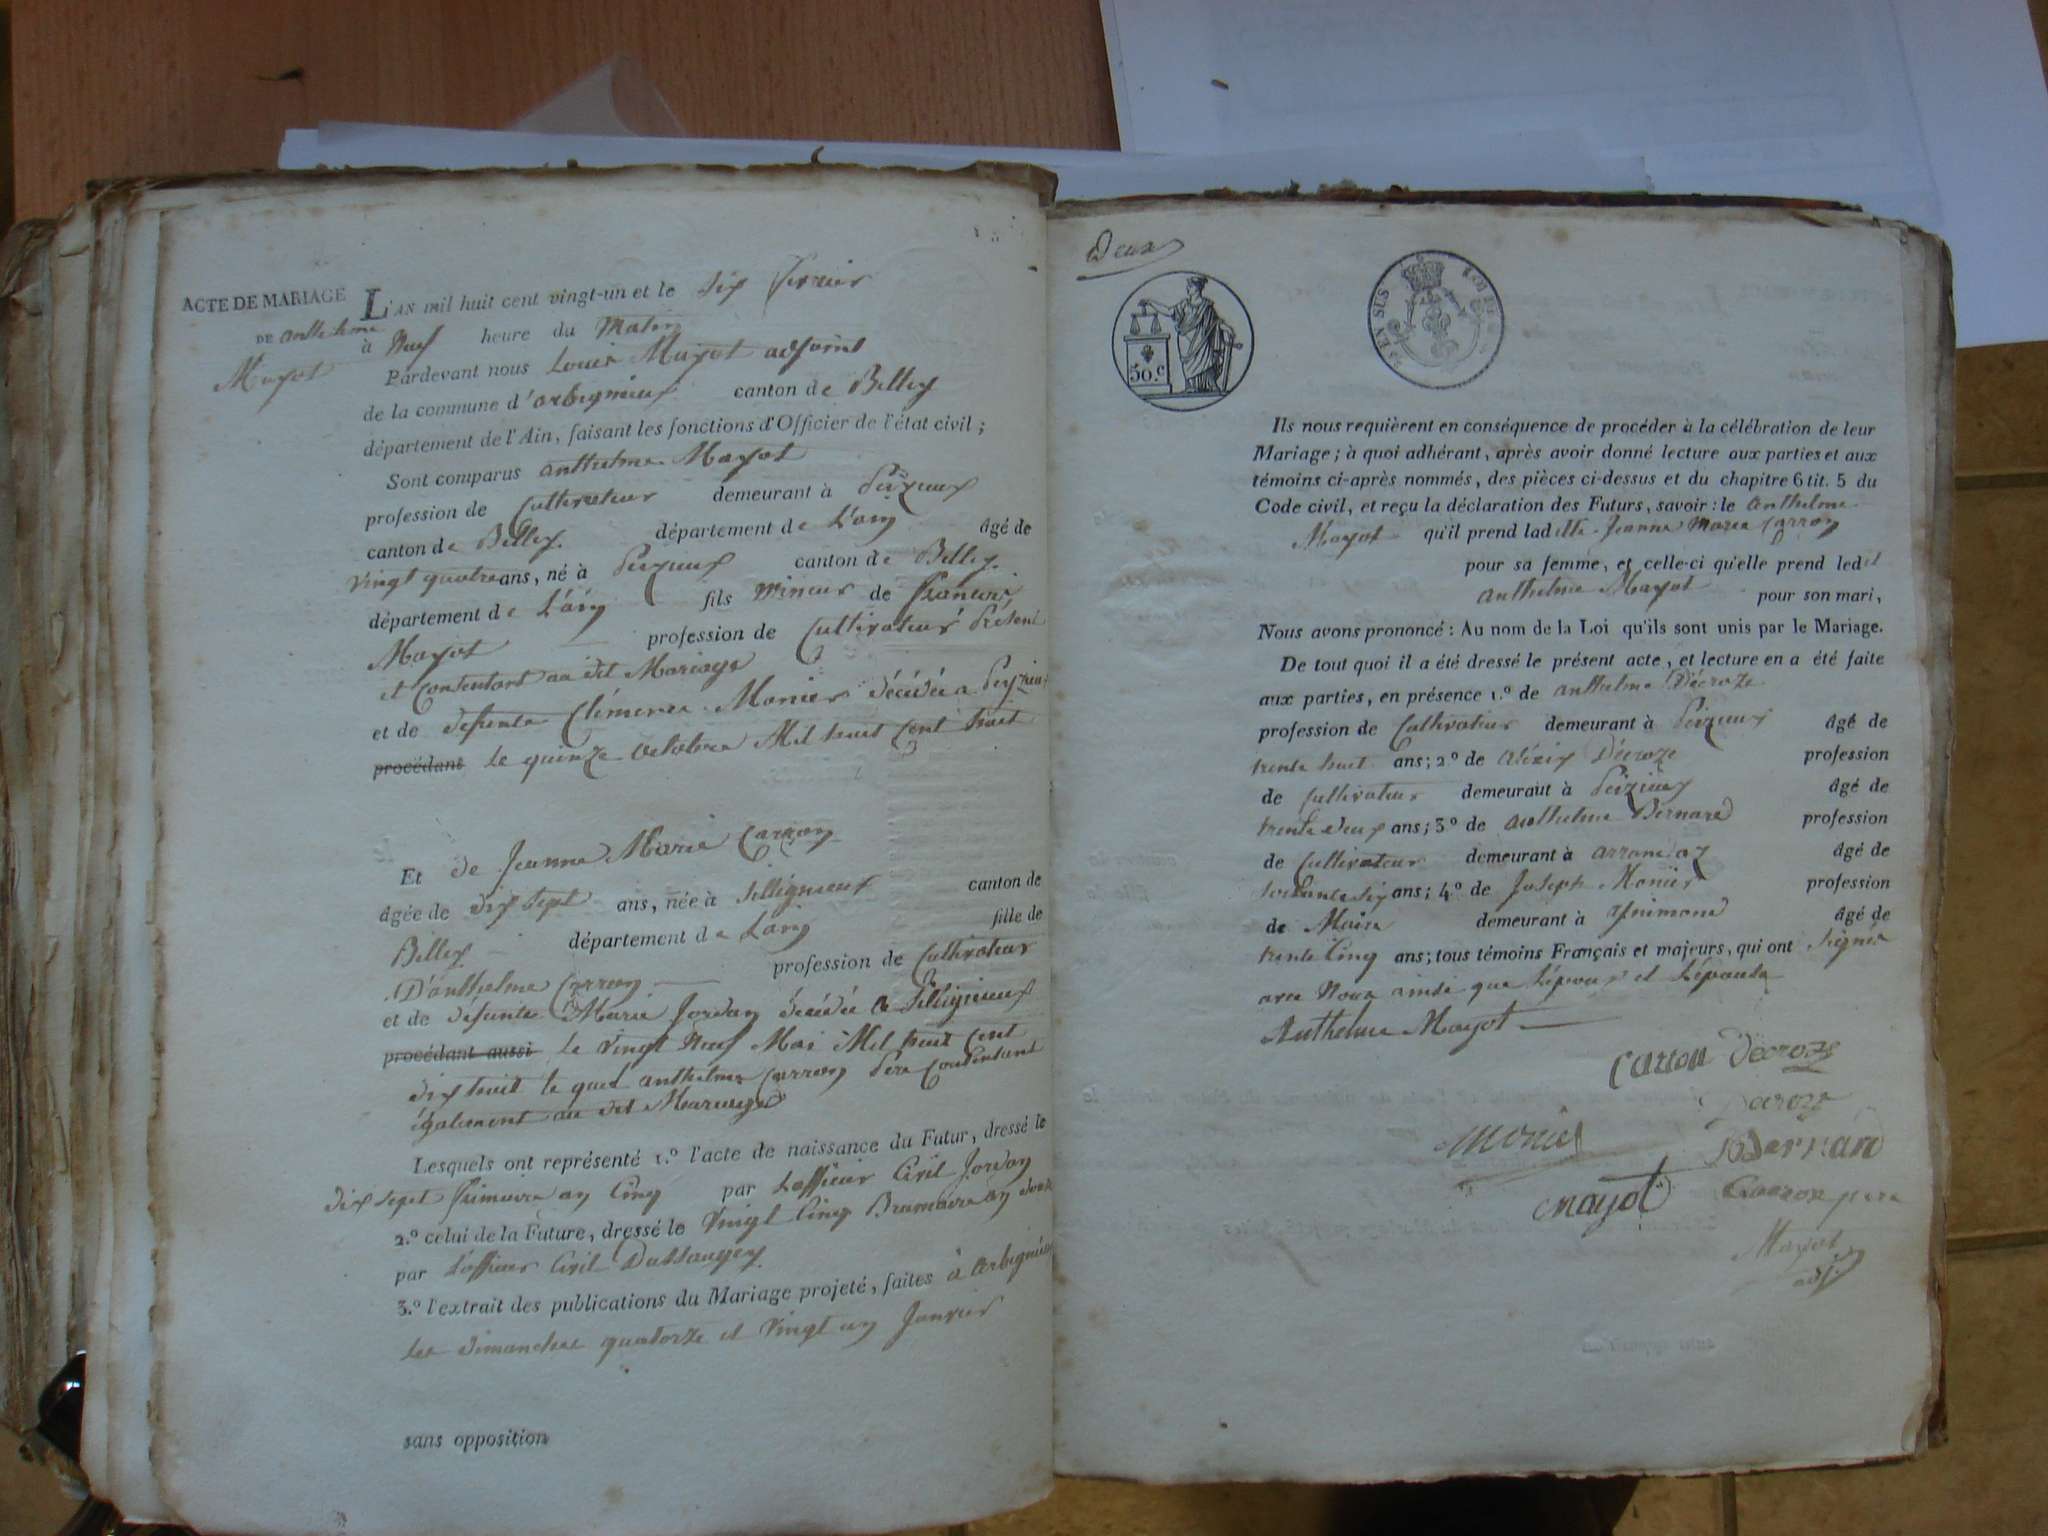 ACTE DE MARIAGE
DE anthelme
Mayot
L'AN mil huit cent vingt-un et le six fevrier
à Neuf heure du Matin
Pardevant nous Louis Mayot adjoint
de la commune d'arbignieux canton de Belley
département de l'Ain, faisant les fonctions d'Officier de l'état civil ;
Sont comparus anthelme Mayot
profession de Cultivateur demeurant à Peizieux
canton de Belley département de L'ain âgé de
vingt quatre ans, né à Peizieux canton de Belley
département de L'ain fils mineur de francois
Mayot profession de Cultivateur Présent
et consentant au dit Mariage
et de defunte Clémence Monier décédée a Peizieux
procédant le quinze octobre Mil huit cent huit
Et de Jeanne Marie Carron
âgée de dix sept ans, née à Sillignieux canton de
Belley département de Lain fille de
D'anthelme Carron profession de Cultivateur
et de défunte Marie Jordan décédée a Sillignieux
procédant aussi le vingt Neuf Mai Mil huit cent
dix huit le quel anthelme Carron Pere consentant
également au dit Mariage
Lesquels ont représenté 1.º l'acte de naissance du Futur, dressé le
dix sept frimaire an Cinq par L'officier Civil Jordan
2.º celui de la Future, dressé le vingt Cinq Brumaire an douze
par L'officier Civil
3.º l'extrait des publications du Mariage projeté, faites à arbignieux
les dimanches quatorze et vingt un Janvier
sans opposition
Deux
50.c
EN SUS
Ils nous requièrent en conséquence de procéder à la célébration de leur
Mariage ; à quoi adhérant, après avoir donné lecture aux parties et aux
témoins ci-après nommés, des pièces ci-dessus et du chapitre 6 tit. 5 du
Code civil, et reçu la déclaration des Futurs, savoir : le anthelme
Mayot qu'il prend ladite Jeanne Marie Carron
pour sa femme, et celle-ci qu'elle prend ledit
anthelme Mayot pour son mari,
Nous avons prononcé : Au nom de la Loi qu'ils sont unis par le Mariage.
De tout quoi il a été dressé le présent acte, et lecture en a été faite
aux parties, en présence 1.º de anthelme Décroze
profession de Cultivateur demeurant à Peizieux âgé de
trente huit ans ; 2º de aléxis Décroze profession
de Cultivateur demeurant à Peizieux âgé de
trente deux ans ; 3º de anthelme Bernard profession
de Cultivateur demeurant à âgé de
soixante six ans ; 4.º de Joseph Monier profession
de Maire demeurant à âgé de
trente Cinq ans ; tous témoins Français et majeurs, qui ont signés
avec Nous ainsi que L'époux et L'épouse
Anthelme Mayot
Carron Decroze
Decroze
Monier Bernard
Mayot Carron pere
Mayot
adj.